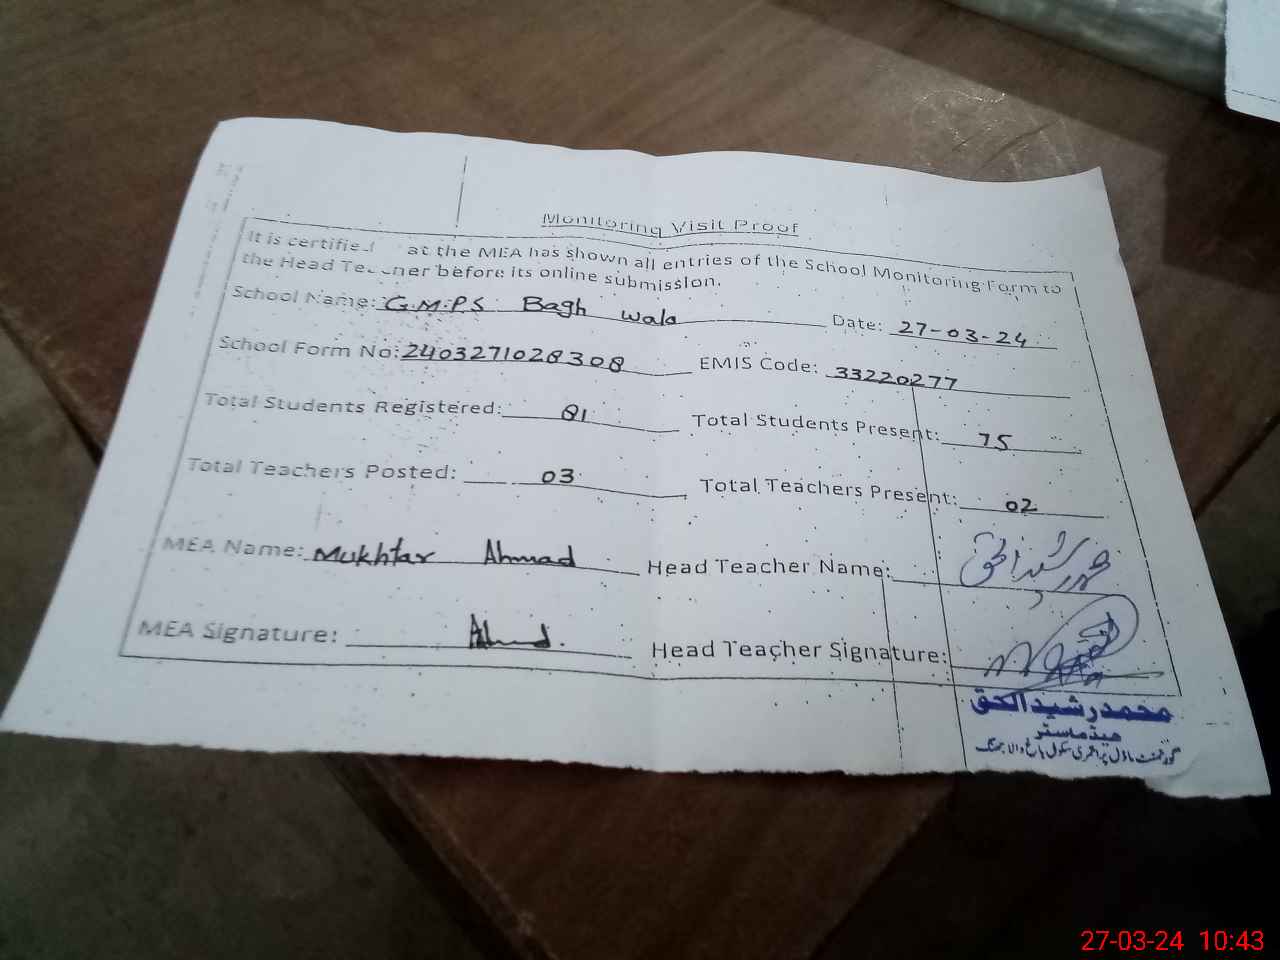 Monitoring Visit Proof
It is certified at the MEA has shown all entries of the School Monitoring Form to
the Head Teacher before its online submission.
School Name: G.M.P.S Bagh Wala Date: 27-03-24
School Form No: 2403271028308 EMIS Code: 33220277
Total Students Registered: 81 Total Students Present: 75
Total Teachers Posted: 03 Total Teachers Present: 02
MEA Name: Mukhtar Ahmad Head Teacher Name: محمد رشید الحق
MEA Signature: Ahmad. Head Teacher Signature:
محمد رشید الحق
ہیڈ ماسٹر
گورنمنٹ ماڈل پرائمری سکول باغ والا جھنگ
27-03-24 10:43